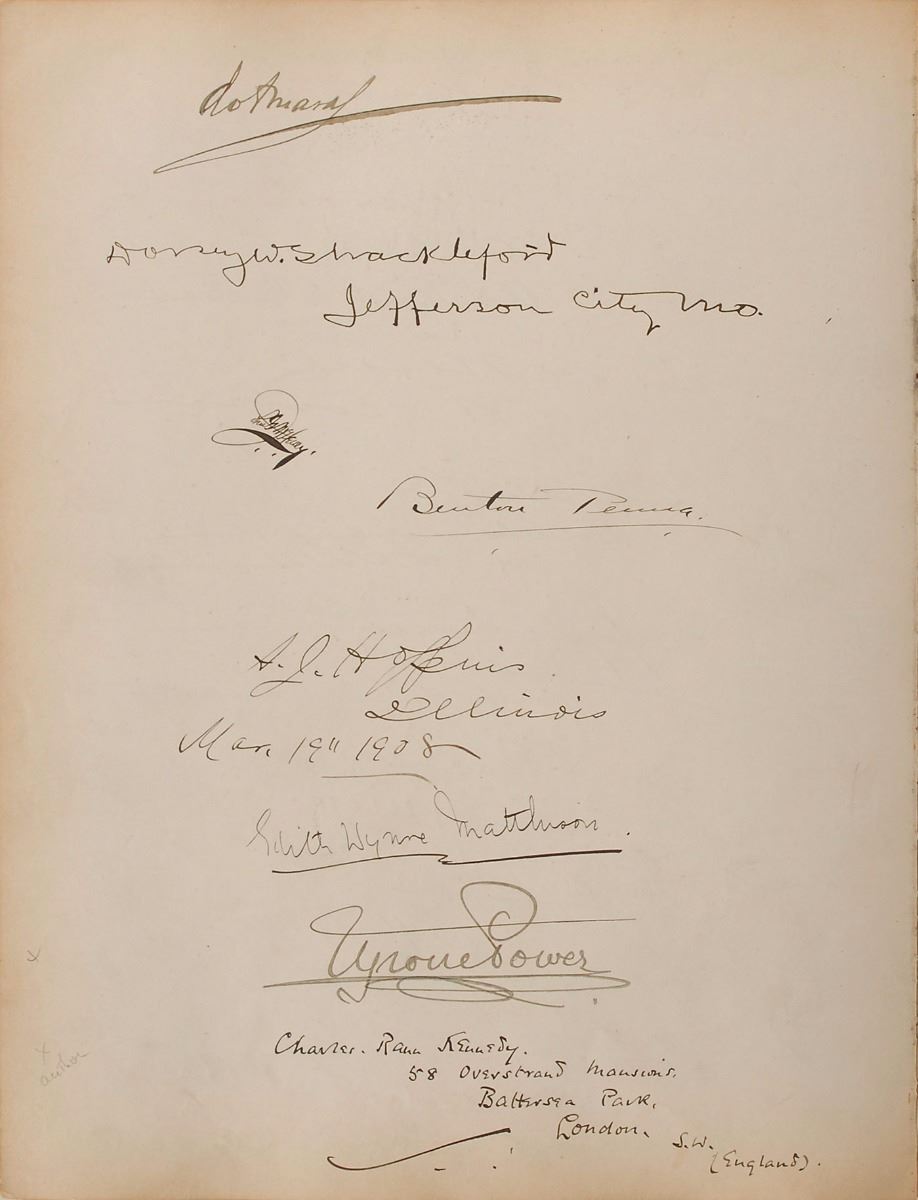 do Amaral
Dorsey W. Shackleford
Jefferson City Mo.
Benton Penna.
A. J. Hopkins
Illinois
Mar. 19" 1908
Edith Wynne Matthison.
Tyrone Power
Charles. Rann Kennedy.
58 Overstrand Mansions,
Battersea Park,
London.
S.W.
(England).
x
x
author